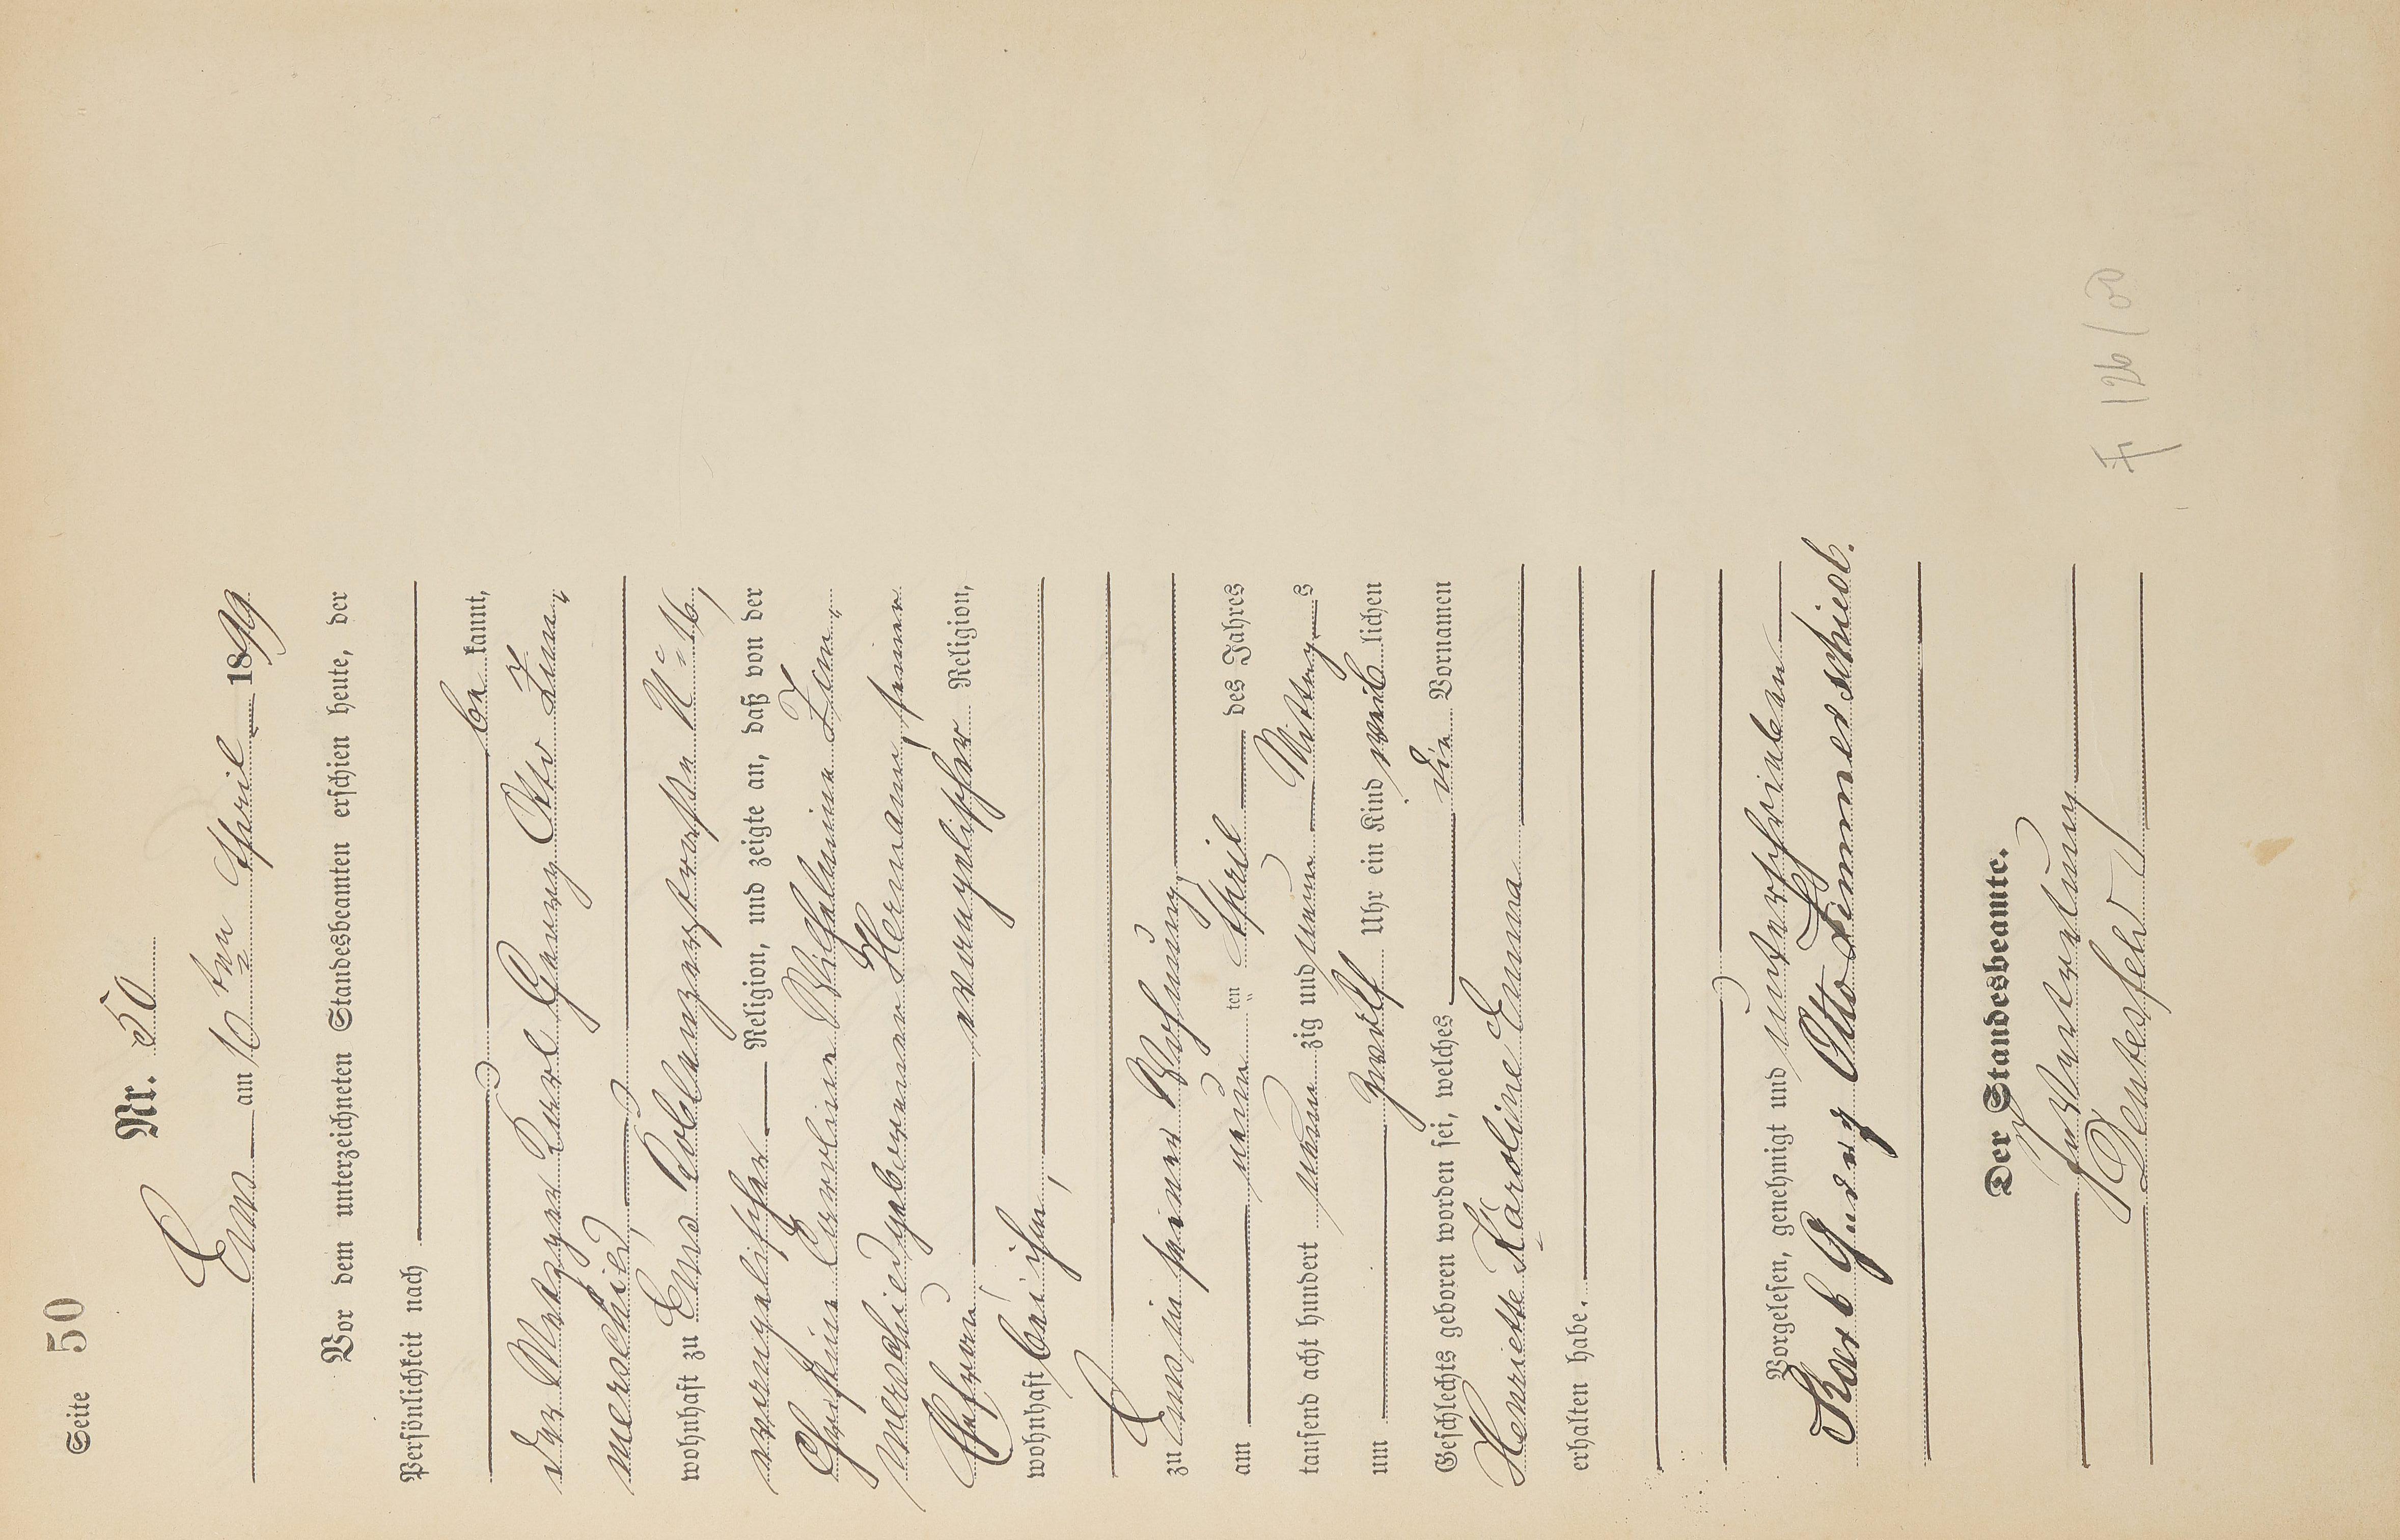 Seite 50
Nr. 50
Ems am 10ten April 1899
Vor dem unterzeichneten Standesbeamten erschien heute, der
Persönlichkeit nach
be kannt,
der Metzger Karl Georg Otto Zim„
merschied,
wohnhaft zu Ems Coblenzerstraße No 16,
evangelischer Religion, und zeigte an, daß von der
Christine Caroline Wilhelmine Zim„
merschied geborenen Hermann, seiner
Ehefrau, evangelischer Religion,
wohnhaft bei ihm,
zu Ems in seiner Wohnung,
am neun ten April des Jahres
tausend acht hundert neun zig und neun Mittags
um zwölf Uhr ein Kind weib lichen
Geschlechts geboren worden sei, welches die Vornamen
Henriette Karoline Emma
erhalten habe.
Vorgelesen, genehmigt und unterschrieben
Karl Georg Otto Zimmerschied.
Der Standesbeamte.
In Vertretung
126/00